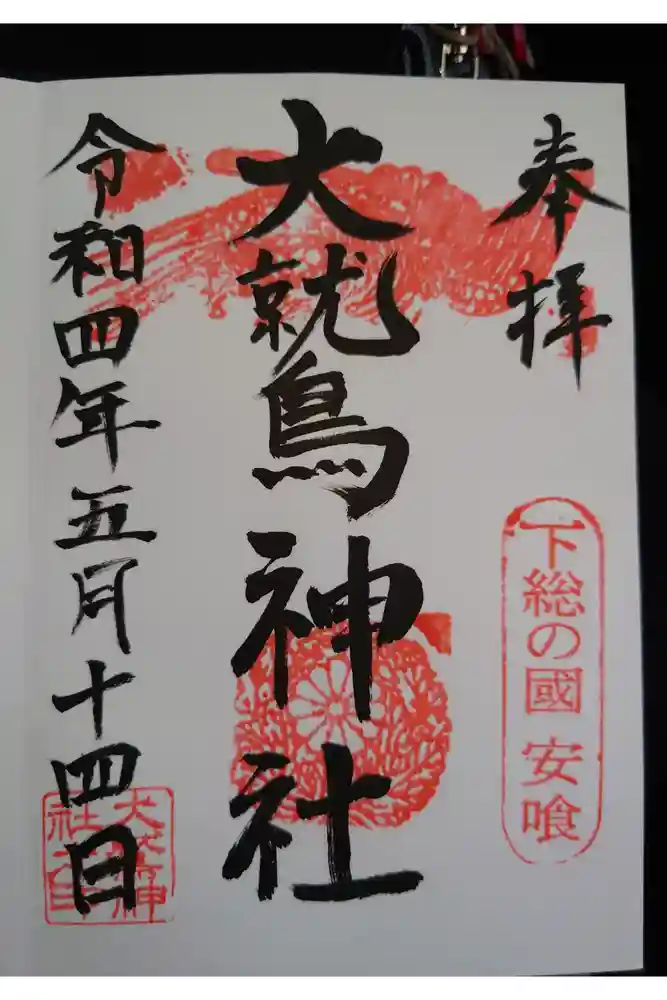 奉拝
下総の國 安喰
大鷲神社
令和四年五月十四日
大鷲神
社之印